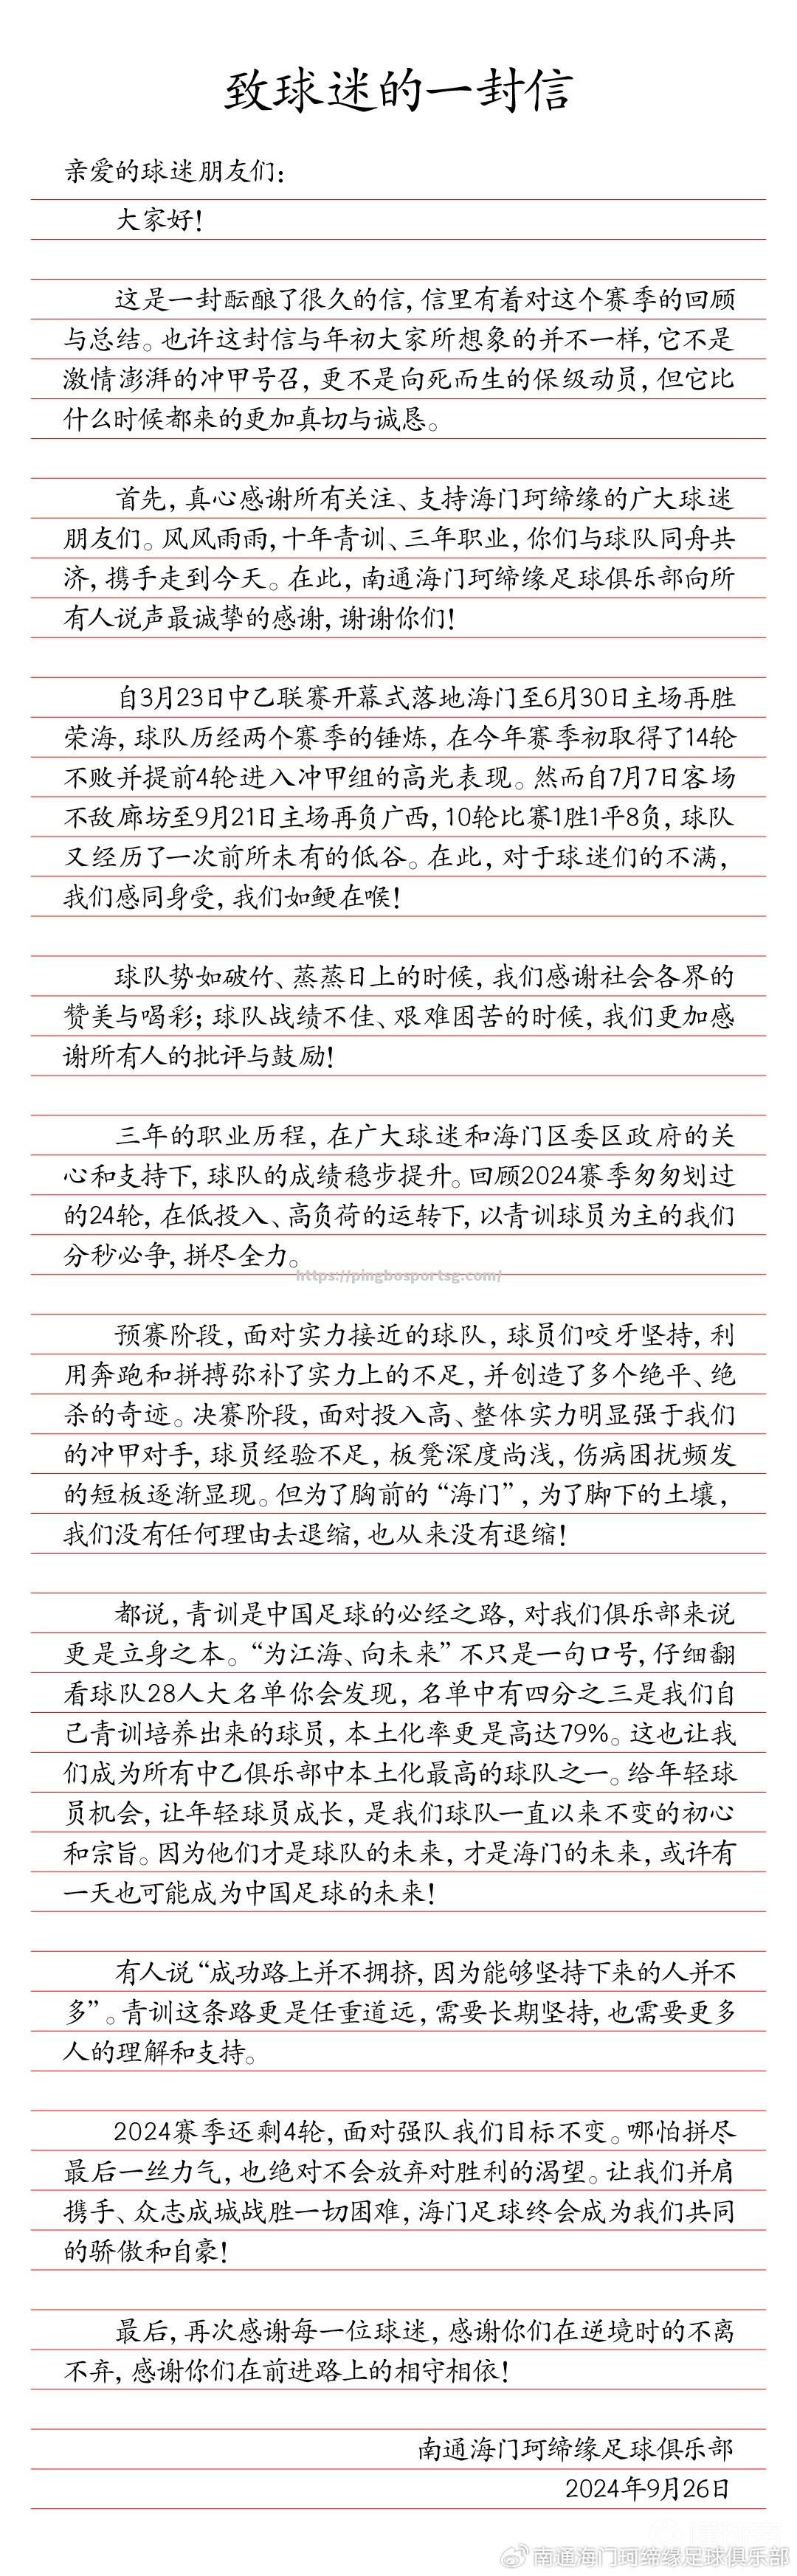 致球迷的一封信
亲爱的球迷朋友们：
大家好！
这是一封酝酿了很久的信，信里有着对这个赛季的回顾
与总结。也许这封信与年初大家所想象的并不一样，它不是
激情澎湃的冲甲号召，更不是向死而生的保级动员，但它比
什么时候都来的更加真切与诚恳。
首先，真心感谢所有关注、支持海门珂缔缘的广大球迷
朋友们。风风雨雨，十年青训、三年职业，你们与球队同舟共
济，携手走到今天。在此，南通海门珂缔缘足球俱乐部向所
有人说声最诚挚的感谢，谢谢你们！
自3月23日中乙联赛开幕式落地海门至6月30日主场再胜
荣海，球队历经两个赛季的锤炼，在今年赛季初取得了14轮
不败并提前4轮进入冲甲组的高光表现。然而自7月7日客场
不敌廊坊至9月21日主场再负广西，10轮比赛1胜1平8负，球队
又经历了一次前所未有的低谷。在此，对于球迷们的不满，
我们感同身受，我们如鲠在喉！
球队势如破竹、蒸蒸日上的时候，我们感谢社会各界的
赞美与喝彩；球队战绩不佳、艰难困苦的时候，我们更加感
谢所有人的批评与鼓励！
三年的职业历程，在广大球迷和海门区委区政府的关
心和支持下，球队的成绩稳步提升。回顾2024赛季匆匆划过
的24轮，在低投入、高负荷的运转下，以青训球员为主的我们
分秒必争，拼尽全力。
https://pingbosportsg.com/
预赛阶段，面对实力接近的球队，球员们咬牙坚持，利
用奔跑和拼搏弥补了实力上的不足，并创造了多个绝平、绝
杀的奇迹。决赛阶段，面对投入高、整体实力明显强于我们
的冲甲对手，球员经验不足，板凳深度尚浅，伤病困扰频发
的短板逐渐显现。但为了胸前的“海门”，为了脚下的土壤，
我们没有任何理由去退缩，也从来没有退缩！
都说，青训是中国足球的必经之路，对我们俱乐部来说
更是立身之本。“为江海、向未来”不只是一句口号，仔细翻
看球队28人大名单你会发现，名单中有四分之三是我们自
己青训培养出来的球员，本土化率更是高达79%。这也让我
们成为所有中乙俱乐部中本土化最高的球队之一。给年轻球
员机会，让年轻球员成长，是我们球队一直以来不变的初心
和宗旨。因为他们才是球队的未来，才是海门的未来，或许有
一天也可能成为中国足球的未来！
有人说“成功路上并不拥挤，因为能够坚持下来的人并不
多”。青训这条路更是任重道远，需要长期坚持，也需要更多
人的理解和支持。
2024赛季还剩4轮，面对强队我们目标不变。哪怕拼尽
最后一丝力气，也绝对不会放弃对胜利的渴望。让我们并肩
携手、众志成城战胜一切困难，海门足球终会成为我们共同
的骄傲和自豪！
最后，再次感谢每一位球迷，感谢你们在逆境时的不离
不弃，感谢你们在前进路上的相守相依！
南通海门珂缔缘足球俱乐部
2024年9月26日
南通海门珂缔缘足球俱乐部